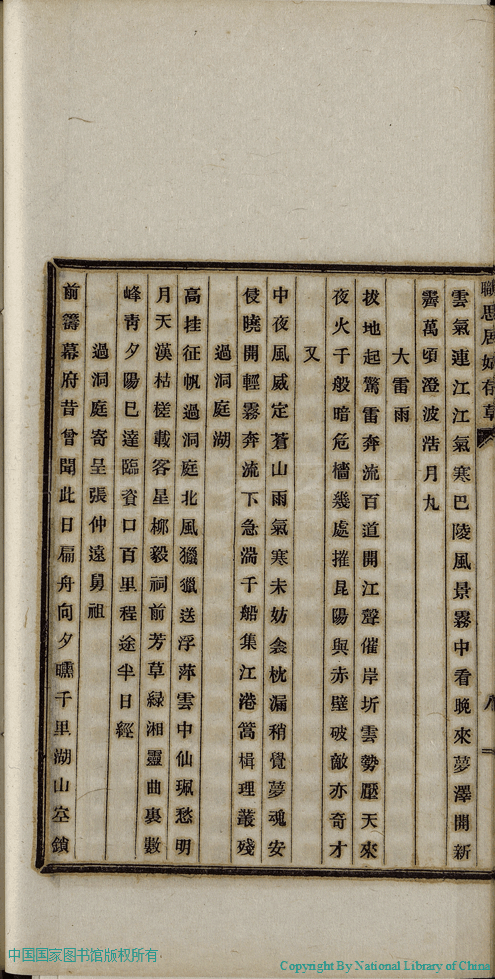 職思居姑存草
雲氣連江江氣寒巴陵風景霧中看晚來夢澤開新
霽萬頃澄波浩月丸
大雷雨
拔地起驚雷奔流百道開江聲催岸圻雲勢壓天來
夜火千般暗危檣幾處摧昆陽與赤壁破敵亦奇才
又
中夜風威定蒼山雨氣寒未妨衾枕漏稍覺夢魂安
侵曉開輕霧奔流下急湍千船集江港篙楫理叢殘
過洞庭湖
高挂征帆過洞庭北風獵獵送浮萍雲中仙珮愁明
月天漢枯槎載客星栁毅祠前芳草緑湘靈曲裏數
峰靑夕陽巳達臨資口百里程途半日經
過洞庭寄呈張仲遠舅祖
前籌幕府昔曾聞此日扁舟向夕曛千里湖山空鎖
中国国家图书馆版权所有
Copyright By National Library of China